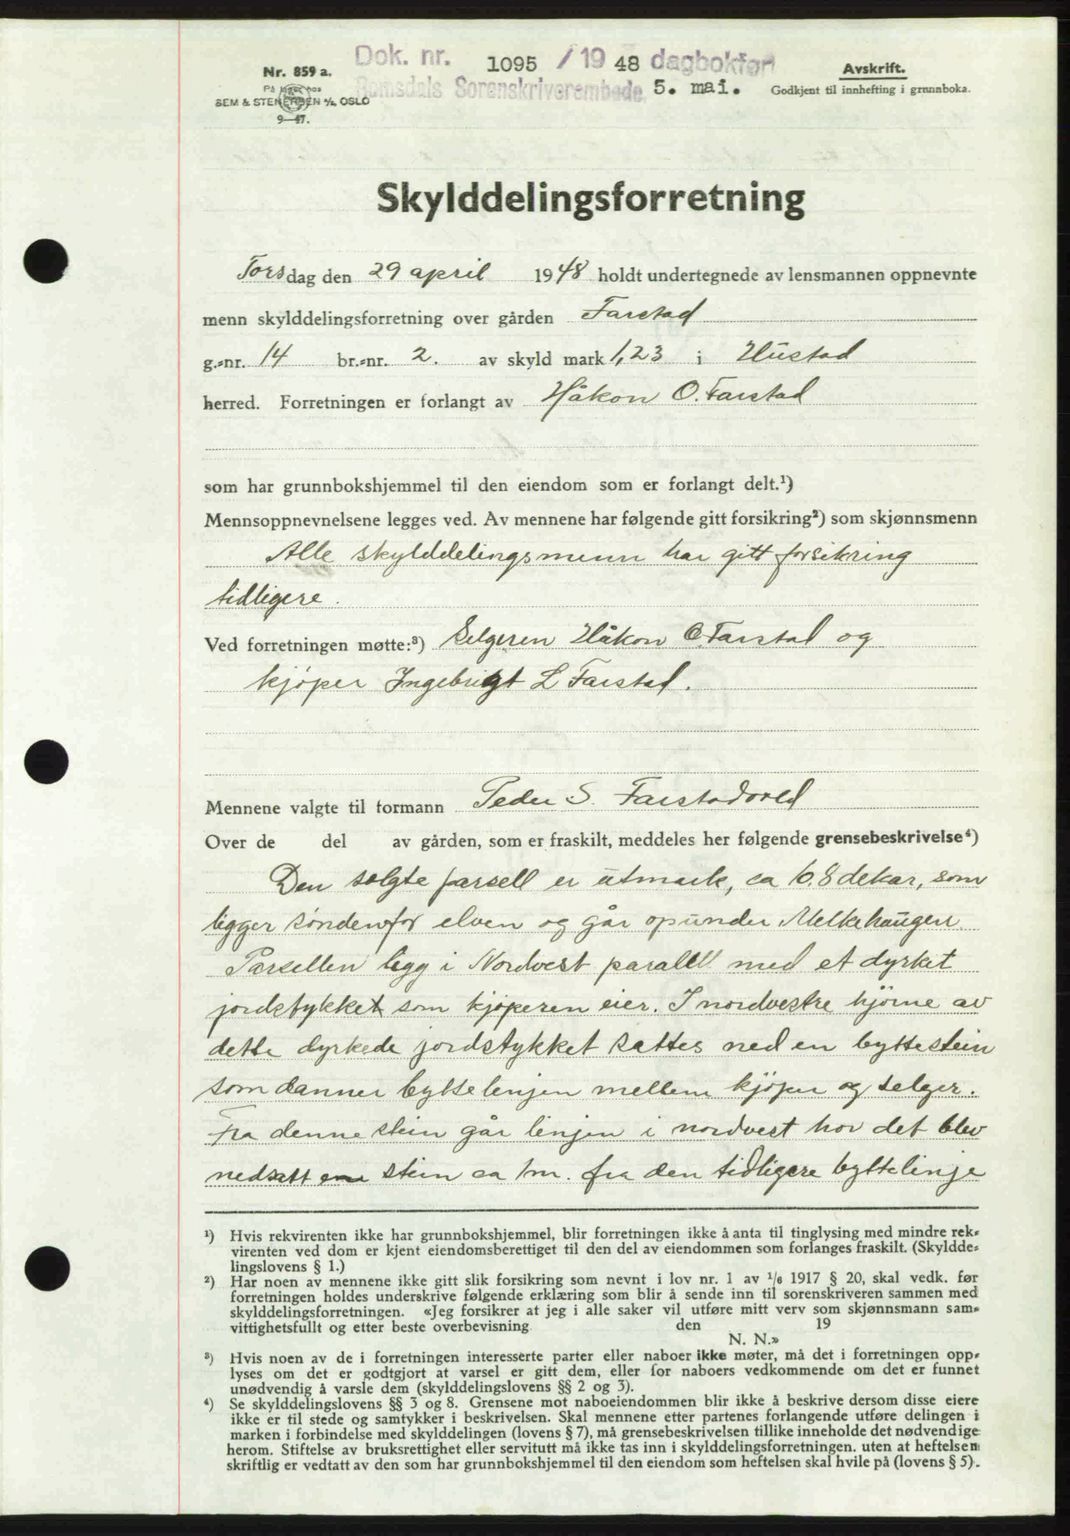 Dok. nr. 1095 / 19 48 dagbokført
Romsdals Sorenskriverembede 5. mai.
Nr. 859 a.
På lager hos
SEM & STENERSEN A/S, OSLO
9—47.
Avskrift.
Godkjent til innhefting i grunnboka.
Skylddelingsforretning
Torsdag den 29 april 1948 holdt undertegnede av lensmannen oppnevnte
menn skylddelingsforretning over gården Farstad
g.-nr. 14 br.-nr. 2. av skyld mark 1,23 i Hustad
herred. Forretningen er forlangt av Håkon O. Farstad
som har grunnbokshjemmel til den eiendom som er forlangt delt.¹)
Mennsoppnevnelsene legges ved. Av mennene har følgende gitt forsikring²) som skjønnsmenn
Alle skylddelingsmenn har gitt forsikring
tidligere.
Ved forretningen møtte:³) Selgeren Håkon O. Farstad og
kjöper Ingebrigt L Farstad.
Mennene valgte til formann Peder S. Farstadvold
Over de del av gården, som er fraskilt, meddeles her følgende grensebeskrivelse⁴)
Den solgte parsell er utmark, ca 6.8 dekar, som
ligger söndenfor elven og går opunder Melkehaugen.
Parsellen ligg i Nordvest parallell med et dyrket
jordstykket som kjöperen eier. I nordvestre hjörne av
dette dyrkede jordstykket sattes ned en byttestein
som danner byttelinjen mellem kjöper og selger.
Fra denne stein går linjen i nordvest hvor det blev
nedsatt en stein ca 1m. fra den tidligere byttelinje
¹) Hvis rekvirenten ikke har grunnbokshjemmel, blir forretningen ikke å anta til tinglysing med mindre rek-
virenten ved dom er kjent eiendomsberettiget til den del av eiendommen som forlanges fraskilt. (Skyldde-
lingslovens § 1.)
²) Har noen av mennene ikke gitt slik forsikring som nevnt i lov nr. 1 av 1/6 1917 § 20, skal vedk. før
forretningen holdes underskrive følgende erklæring som blir å sende inn til sorenskriveren sammen med
skylddelingsforretningen. «Jeg forsikrer at jeg i alle saker vil utføre mitt verv som skjønnsmann sam-
vittighetsfullt og etter beste overbevisning den 19
N. N.»
³) Hvis noen av de i forretningen interesserte parter eller naboer ikke møter, må det i forretningen opp-
lyses om det er godtgjort at varsel er gitt dem, eller for naboers vedkommende om det er funnet
unødvendig å varsle dem (skylddelingslovens §§ 2 og 3).
⁴) Se skylddelingslovens §§ 3 og 8. Grensene mot naboeiendommen blir ikke å beskrive dersom disse eiere
ikke er til stede og samtykker i beskrivelsen. Skal mennene etter partenes forlangende utføre delingen i
marken i forbindelse med skylddelingen (lovens § 7), må grensebeskrivelsen tillike inneholde det nødvendige
herom. Stiftelse av bruksrettighet eller servitutt må ikke tas inn i skylddelingsforretningen, uten at heftelsen
skriftlig er vedtatt av den som har grunnbokshjemmel til den eiendom som heftelsen skal hvile på (lovens § 5).